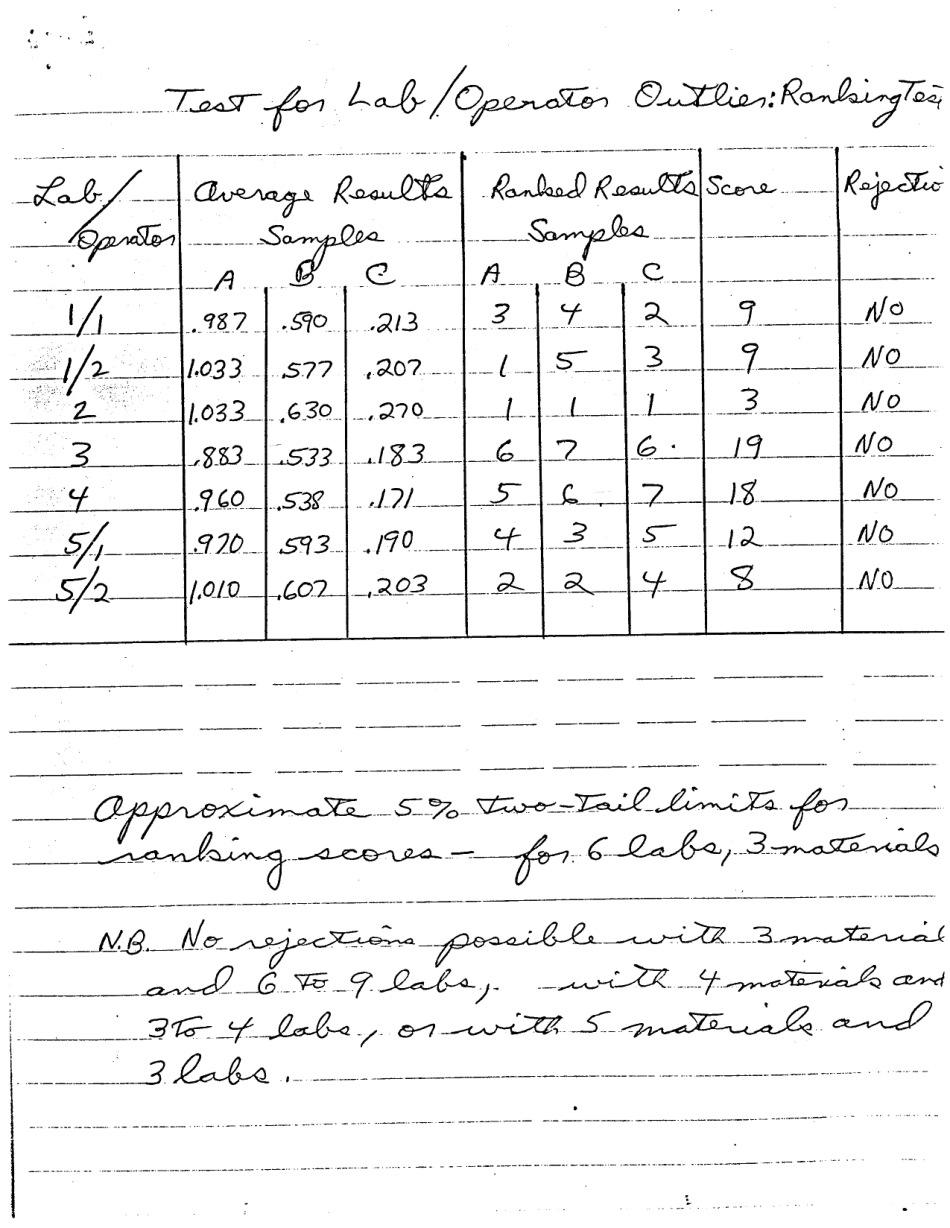 Test for Lab/Operator Outlier: Ranking Tes
Lab/Operator Average Results Samples Ranked Results Samples Score Rejectio
A B C A B C
1/1 .987 .590 .213 3 4 2 9 NO
1/2 1.033 .577 .207 1 5 3 9 NO
2 1.033 .630 .270 1 1 1 3 NO
3 .883 .533 .183 6 7 6. 19 NO
4 .960 .538 .171 5 6 7 18 NO
5/1 .970 .593 .190 4 3 5 12 NO
5/2 1.010 .607 .203 2 2 4 8 NO
Approximate 5% two-tail limits for
ranking scores - for 6 labs, 3 materials
N.B. No rejections possible with 3 material
and 6 to 9 labs, with 4 materials and
3 to 4 labs, or with 5 materials and
3 labs.